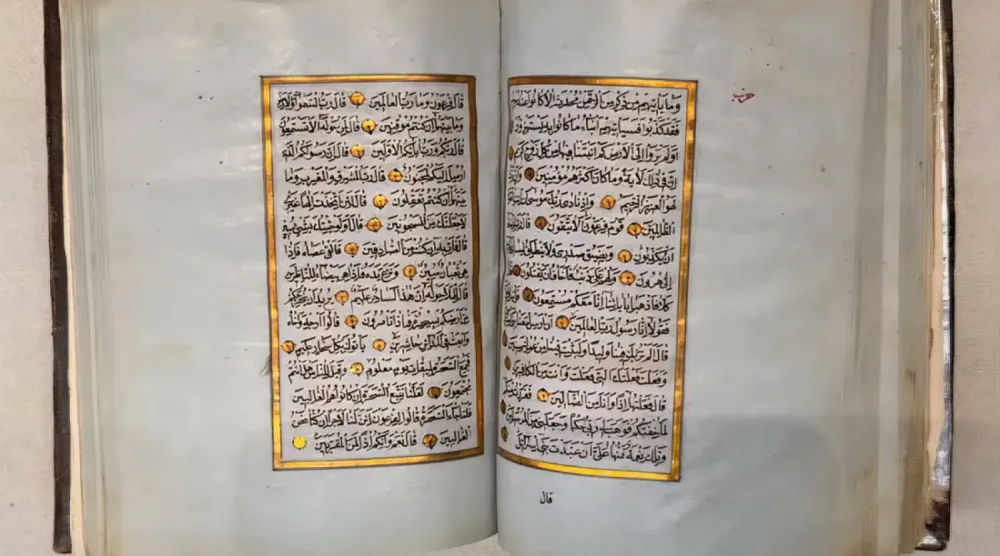 حزب
وَمَا يَاْتِيهِمْ مِنْ ذِكْرٍ مِنَ الرَّحْمٰنِ مُحْدَثٍ اِلَّا كَانُوا عَنْهُ مُعْرِضِينَ
فَقَدْ كَذَّبُوا فَسَيَاْتِيهِمْ اَنْبَاءُ مَا كَانُوا بِهِ يَسْتَهْزِؤُنَ
اَوَلَمْ يَرَوْا اِلَى الْاَرْضِ كَمْ اَنْبَتْنَا فِيهَا مِنْ كُلِّ زَوْجٍ كَرِيمٍ
اِنَّ فِي ذٰلِكَ لَاٰيَةً وَمَا كَانَ اَكْثَرُهُمْ مُؤْمِنِينَ وَاِنَّ رَبَّكَ
لَهُوَ الْعَزِيزُ الرَّحِيمُ وَاِذْ نَادٰى رَبُّكَ مُوسٰى اَنِ ائْتِ الْقَوْمَ
الظَّالِمِينَ قَوْمَ فِرْعَوْنَ اَلَا يَتَّقُونَ قَالَ رَبِّ اِنِّي اَخَافُ
اَنْ يُكَذِّبُونِ وَيَضِيقُ صَدْرِي وَلَا يَنْطَلِقُ لِسَانِي فَاَرْسِلْ
اِلٰى هٰرُونَ وَلَهُمْ عَلَيَّ ذَنْبٌ فَاَخَافُ اَنْ يَقْتُلُونِ قَالَ
كَلَّا فَاذْهَبَا بِاٰيَاتِنَا اِنَّا مَعَكُمْ مُسْتَمِعُونَ فَاْتِيَا فِرْعَوْنَ
فَقُولَا اِنَّا رَسُولُ رَبِّ الْعَالَمِينَ اَنْ اَرْسِلْ مَعَنَا بَنِي اِسْرَائِيلَ
قَالَ اَلَمْ نُرَبِّكَ فِينَا وَلِيدًا وَلَبِثْتَ فِينَا مِنْ عُمُرِكَ سِنِينَ
وَفَعَلْتَ فَعْلَتَكَ الَّتِي فَعَلْتَ وَاَنْتَ مِنَ الْكَافِرِينَ
قَالَ فَعَلْتُهَا اِذًا وَاَنَا مِنَ الضَّالِّينَ فَفَرَرْتُ مِنْكُمْ
لَمَّا خِفْتُكُمْ فَوَهَبَ لِي رَبِّي حُكْمًا وَجَعَلَنِي مِنَ الْمُرْسَلِينَ
وَتِلْكَ نِعْمَةٌ تَمُنُّهَا عَلَيَّ اَنْ عَبَّدْتَ بَنِي اِسْرَائِيلَ
قال
قَالَ فِرْعَوْنُ وَمَا رَبُّ الْعَالَمِينَ قَالَ رَبُّ السَّمٰوَاتِ وَالْاَرْضِ
وَمَا بَيْنَهُمَا اِنْ كُنْتُمْ مُوقِنِينَ قَالَ لِمَنْ حَوْلَهُ اَلَا تَسْتَمِعُونَ
قَالَ رَبُّكُمْ وَرَبُّ اٰبَائِكُمُ الْاَوَّلِينَ قَالَ اِنَّ رَسُولَكُمُ الَّذِي
اُرْسِلَ اِلَيْكُمْ لَمَجْنُونٌ قَالَ رَبُّ الْمَشْرِقِ وَالْمَغْرِبِ وَمَا
بَيْنَهُمَا اِنْ كُنْتُمْ تَعْقِلُونَ قَالَ لَئِنِ اتَّخَذْتَ اِلٰهًا غَيْرِي
لَاَجْعَلَنَّكَ مِنَ الْمَسْجُونِينَ قَالَ اَوَلَوْ جِئْتُكَ بِشَيْءٍ مُبِينٍ
قَالَ فَاْتِ بِهِ اِنْ كُنْتَ مِنَ الصَّادِقِينَ فَاَلْقٰى عَصَاهُ فَاِذَا
هِيَ ثُعْبَانٌ مُبِينٌ وَنَزَعَ يَدَهُ فَاِذَا هِيَ بَيْضَاءُ لِلنَّاظِرِينَ
قَالَ لِلْمَلَاِ حَوْلَهُ اِنَّ هٰذَا لَسَاحِرٌ عَلِيمٌ يُرِيدُ اَنْ يُخْرِجَكُمْ
مِنْ اَرْضِكُمْ بِسِحْرِهِ فَمَاذَا تَاْمُرُونَ قَالُوا اَرْجِهْ وَاَخَاهُ
وَابْعَثْ فِي الْمَدَائِنِ حَاشِرِينَ يَاْتُوكَ بِكُلِّ سَحَّارٍ عَلِيمٍ
فَجُمِعَ السَّحَرَةُ لِمِيقَاتِ يَوْمٍ مَعْلُومٍ وَقِيلَ لِلنَّاسِ هَلْ اَنْتُمْ
مُجْتَمِعُونَ لَعَلَّنَا نَتَّبِعُ السَّحَرَةَ اِنْ كَانُوا هُمُ الْغَالِبِينَ
فَلَمَّا جَاءَ السَّحَرَةُ قَالُوا لِفِرْعَوْنَ اَئِنَّ لَنَا لَاَجْرًا اِنْ كُنَّا نَحْنُ
الْغَالِبِينَ قَالَ نَعَمْ وَاِنَّكُمْ اِذًا لَمِنَ الْمُقَرَّبِينَ